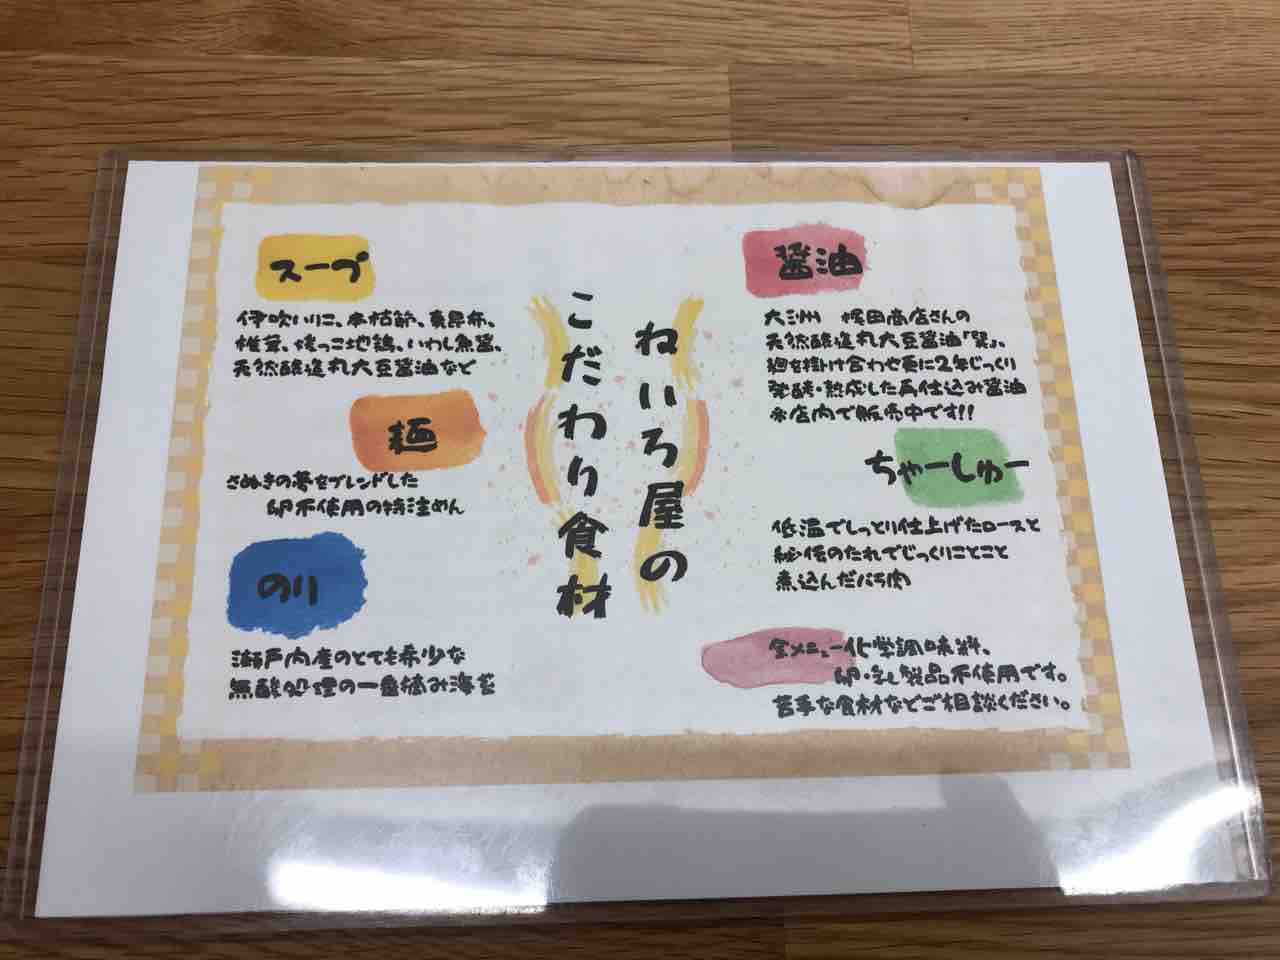 ねいろ屋の
こだわり食材
スープ
伊吹いりこ、本枯節、真昆布、
椎茸、媛っこ地鶏、いわし魚醤、
天然醸造丸大豆醤油など
麺
さぬきの夢をブレンドした
卵不使用の特注めん
のり
瀬戸内産のとても希少な
無酸処理の一番摘み海苔
醤油
大洲 梶田商店さんの
天然醸造丸大豆醤油「巽」、
麹を掛け合わせ更に2年じっくり
発酵・熟成した再仕込み醤油
※店内で販売中です!!
ちゃーしゅー
低温でしっとり仕上げたロースと
秘伝のたれでじっくりことこと
煮込んだバラ肉
全メニュー化学調味料、
卵・乳製品不使用です。
苦手な食材などご相談ください。